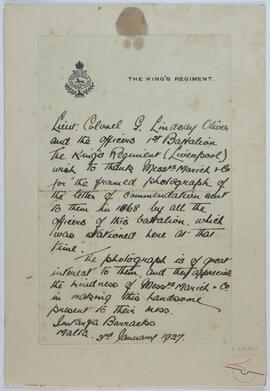 THE KING'S REGIMENT.
Lieut: Colonel G. Lindsay Oliver
and the officers 1st Battalion
The King's Regiment (Liverpool)
wish to thank Messrs Marich & Co
for the framed photograph of
the letter of commendation sent
to them in 1868 by all the
officers of this battalion, which
was stationed here at that
time.
The photograph is of great
interest to them, and they appreciate
the kindness of Messrs Marich & Co
in making this handsome
present to their mess.
Imtarfa Barracks
Malta. 3rd January 1937.